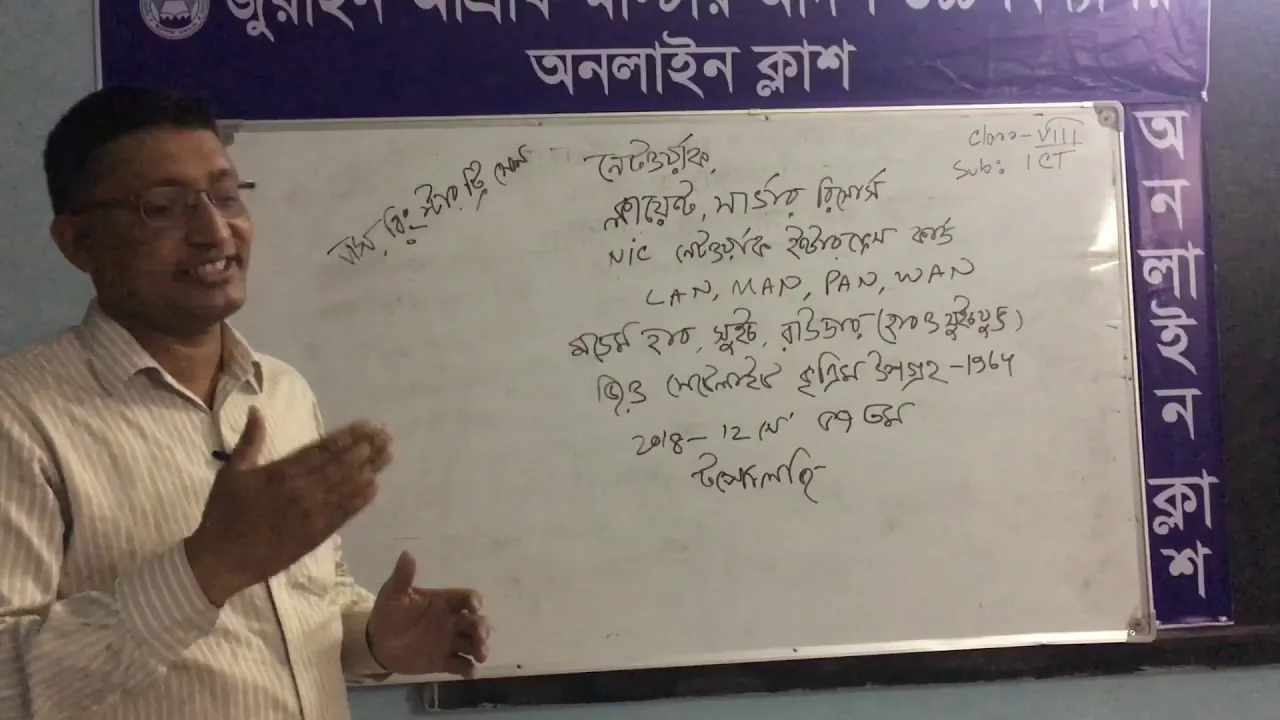 জুরাইন আশ্রাফ মাস্টার আদর্শ উচ্চ বিদ্যালয়
অনলাইন ক্লাশ
Class-VIII
Sub: ICT
বাস, রিং, স্টার, ট্রি, মেস
নেটওয়ার্ক,
ক্লায়েন্ট, সার্ভার, রিসোর্স
NIC নেটওয়ার্ক ইন্টারফেস কার্ড
LAN, MAN, PAN, WAN
মডেম হাব, সুইচ, রাউডার (হাব ও সুইচযুক্ত)
জিও সেটেলাইট কৃত্রিম উপগ্রহ -1964
2018- 12 মে ৫৭ তম
টপোলজি
অনলাইন ক্লাশ